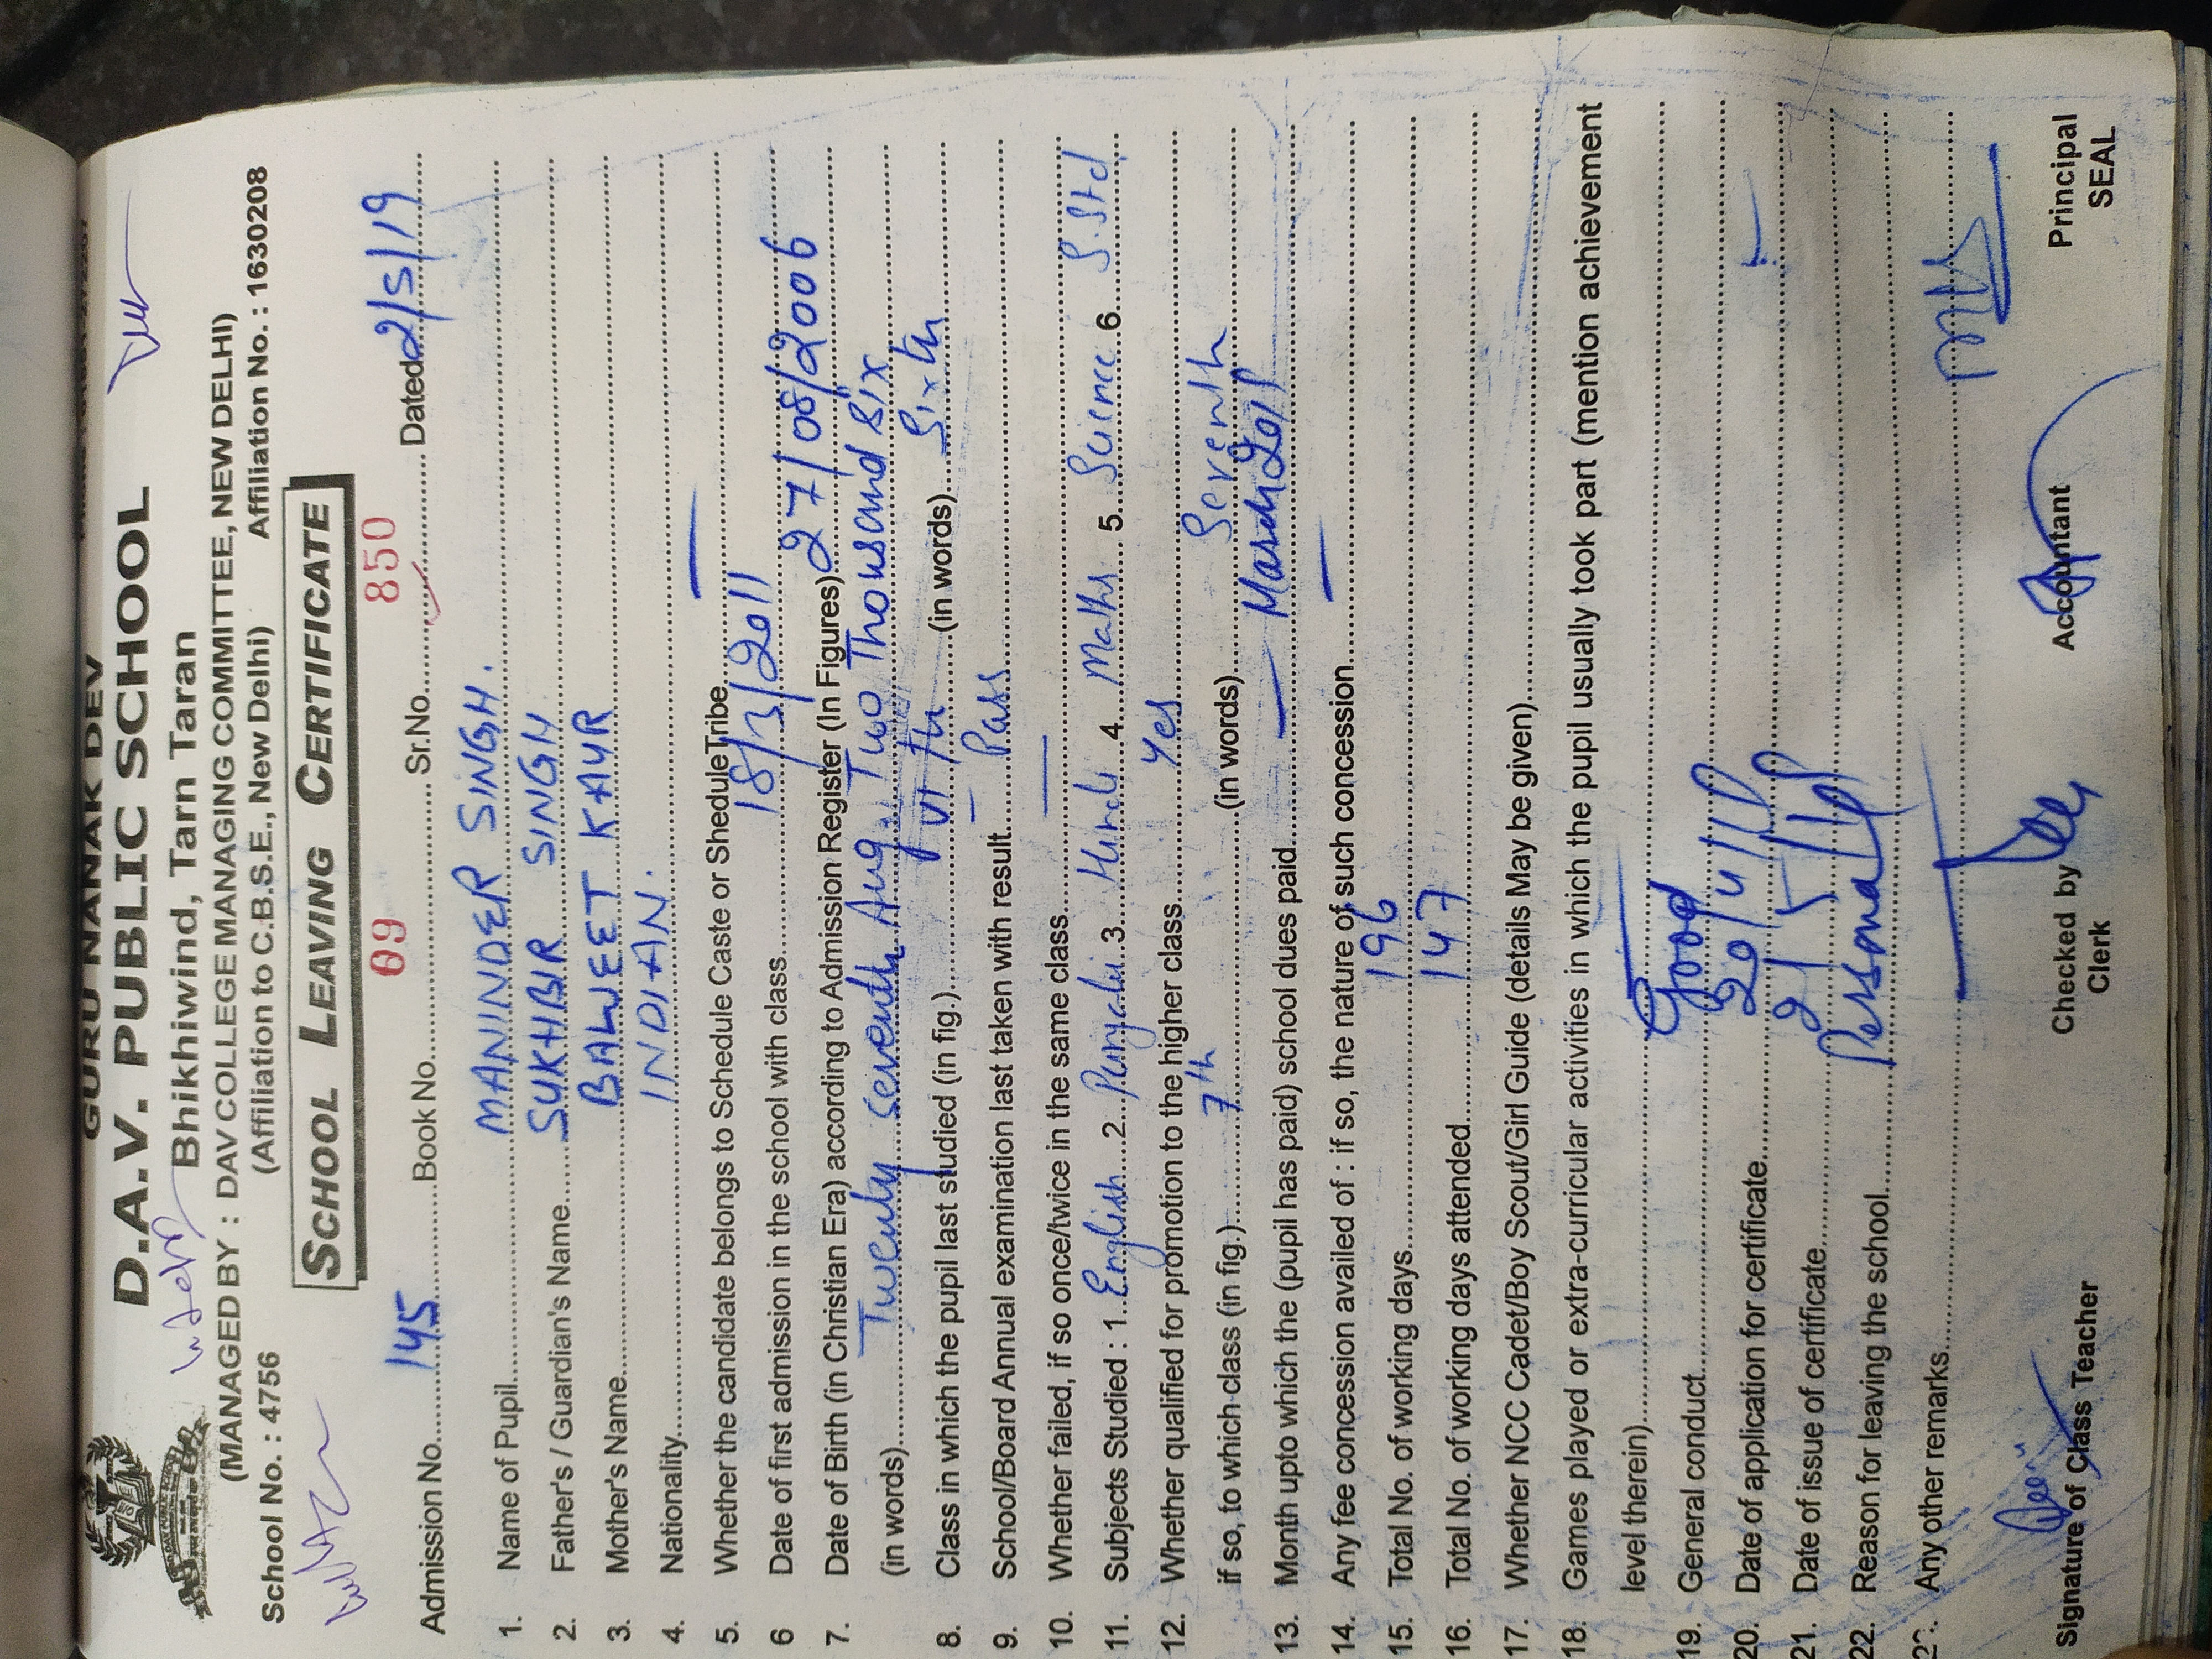 GURU NANAK DEV
D.A.V. PUBLIC SCHOOL
Bhikhiwind, Tarn Taran
(MANAGED BY : DAV COLLEGE MANAGING COMMITTEE, NEW DELHI)
School No. : 4756 (Affiliation to C.B.S.E., New Delhi) Affiliation No. : 1630208
SCHOOL LEAVING CERTIFICATE
Admission No. 145 Book No. 09 Sr.No. 850 Dated 2/5/19
1. Name of Pupil MANINDER SINGH.
2. Father's / Guardian's Name SUKHBIR SINGH
3. Mother's Name BALWEET KAUR
4. Nationality INDIAN.
5. Whether the candidate belongs to Schedule Caste or SheduleTribe —
6 Date of first admission in the school with class 18/3/2011
7. Date of Birth (in Christian Era) according to Admission Register (In Figures) 27/08/2006
(in words) Twenty seventh Aug. Two Thousand Six
8. Class in which the pupil last studied (in fig.) VI th (in words) Sixth
9. School/Board Annual examination last taken with result Pass
10. Whether failed, if so once/twice in the same class —
11. Subjects Studied : 1. English 2. Punjabi 3. Hindi 4. Maths 5. Science 6. S.Std
12. Whether qualified for promotion to the higher class Yes
if so, to which class (in fig.) 7th (in words) Seventh
13. Month upto which the (pupil has paid) school dues paid — March
14. Any fee concession availed of : if so, the nature of such concession —
15. Total No. of working days 196
16. Total No. of working days attended 147
17. Whether NCC Cadet/Boy Scout/Girl Guide (details May be given)
18. Games played or extra-curricular activities in which the pupil usually took part (mention achievement
level therein) —
19. General conduct Good
20. Date of application for certificate
21. Date of issue of certificate
22. Reason for leaving the school Personal
23. Any other remarks —
Signature of Class Teacher Checked by Accountant Principal
Clerk SEAL